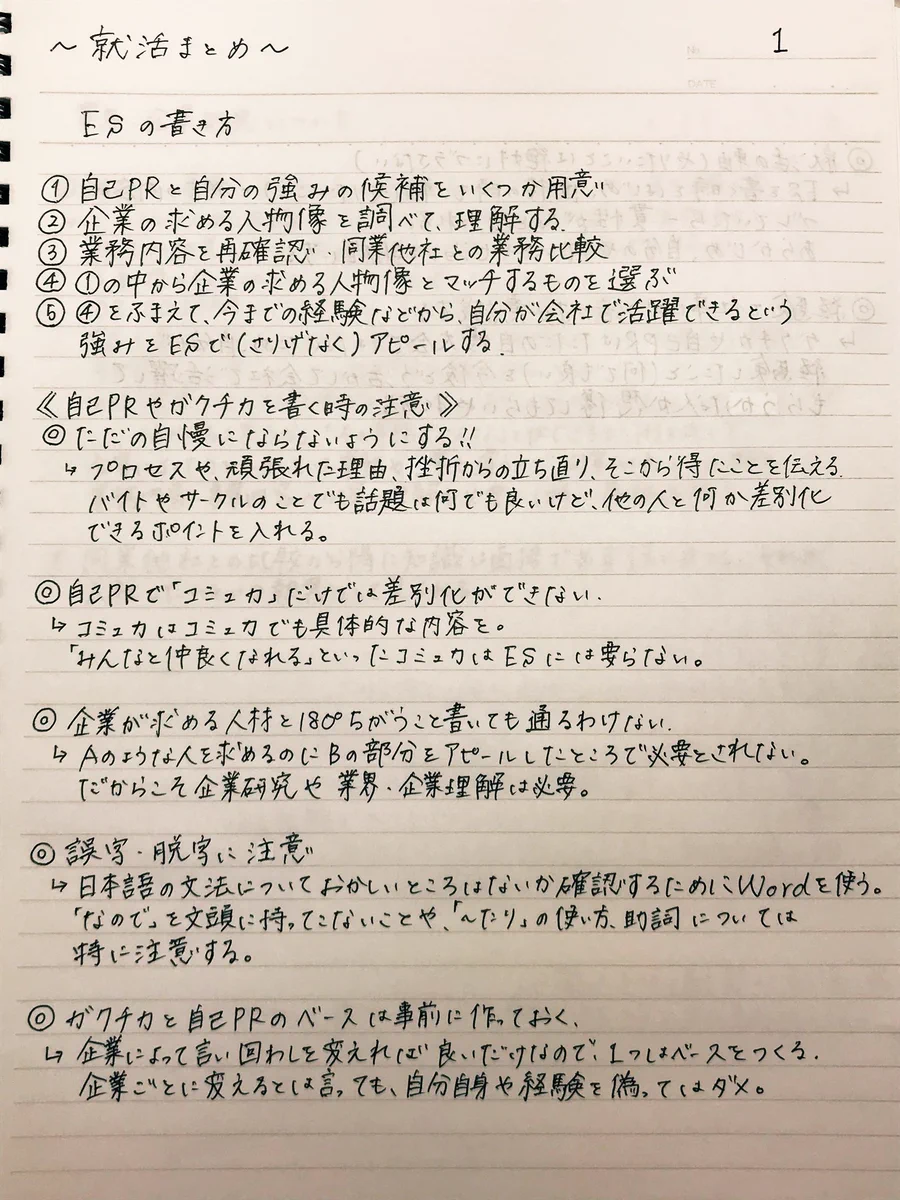 ～就活まとめ～
No. 1
DATE
ESの書き方
① 自己PRと自分の強みの候補をいくつか用意
② 企業の求める人物像を調べて、理解する.
③ 業務内容を再確認・同業他社との業務比較
④ ①の中から企業の求める人物像とマッチするものを選ぶ
⑤ ④をふまえて、今までの経験などから、自分が会社で活躍できるという
強みをESで(さりげなく)アピールする.
《自己PRやガクチカを書く時の注意》
◎ ただの自慢にならないようにする!!
↳ プロセスや、頑張れた理由、挫折からの立ち直り、そこから得たことを伝える.
バイトやサークルのことでも話題は何でも良いけど、他の人と何か差別化
できるポイントを入れる。
◎ 自己PRで「コミュ力」だけでは差別化ができない.
↳ コミュ力はコミュ力でも具体的な内容を。
「みんなと仲良くなれる」といったコミュ力はESには要らない。
◎ 企業が求める人材と180°ちがうこと書いても通るわけない.
↳ Aのような人を求めるのにBの部分をアピールしたところで必要とされない。
だからこそ企業研究や業界・企業理解は必要。
◎ 誤字・脱字に注意
↳ 日本語の文法についておかしいところはないか確認するためにWordを使う。
「なので」を文頭に持ってこないことや、「～たり」の使い方、助詞については
特に注意する。
◎ ガクチカと自己PRのベースは事前に作っておく、
↳ 企業によって言い回わしを変えれば良いだけなので、1つはベースをつくる.
企業ごとに変えるとは言っても、自分自身や経験を偽ってはダメ。